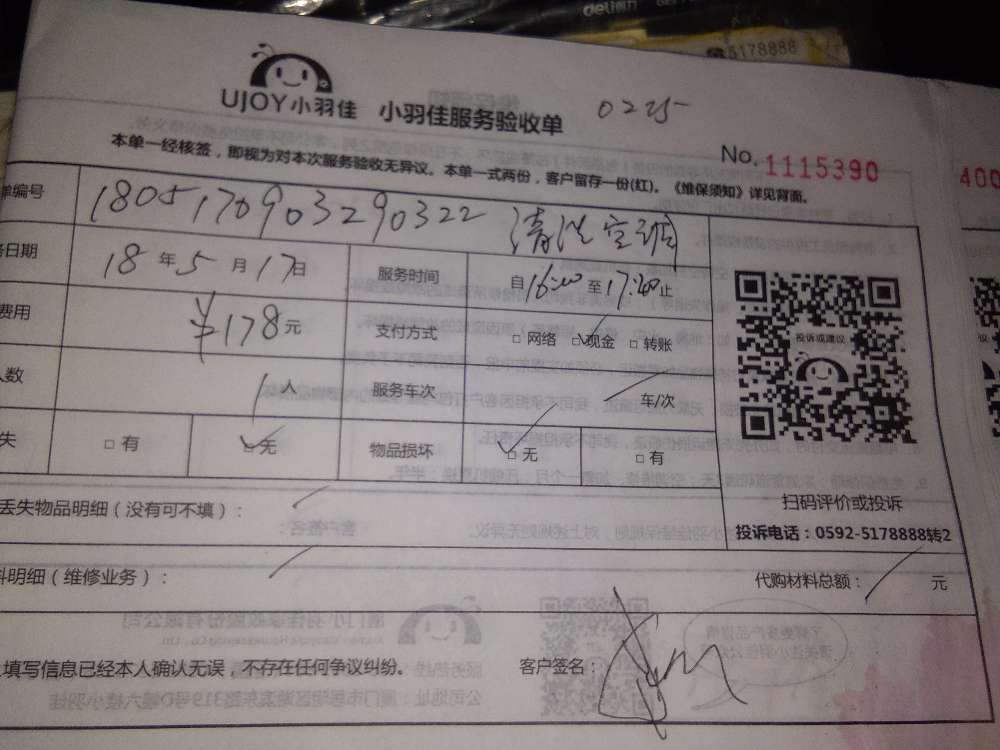 deli
5178888
UJOY小羽佳 小羽佳服务验收单 0225
本单一经核签，即视为对本次服务验收无异议。本单一式两份，客户留存一份(红)。《维保须知》详见背面。
No. 1115390
400
单编号 180517090329 0322 清洗空调
务日期 18年5月17日 服务时间 自16:00至17:40止
费用 ¥178元 支付方式 □网络 □现金 □转账
人数 1人 服务车次 车/次
失 □有 □无 物品损坏 □无 □有
投诉或建议
扫码评价或投诉
丢失物品明细（没有可不填）：
投诉电话：0592-5178888转2
料明细（维修业务）：
代购材料总额： 元
填写信息已经本人确认无误，不存在任何争议纠纷。
客户签名：